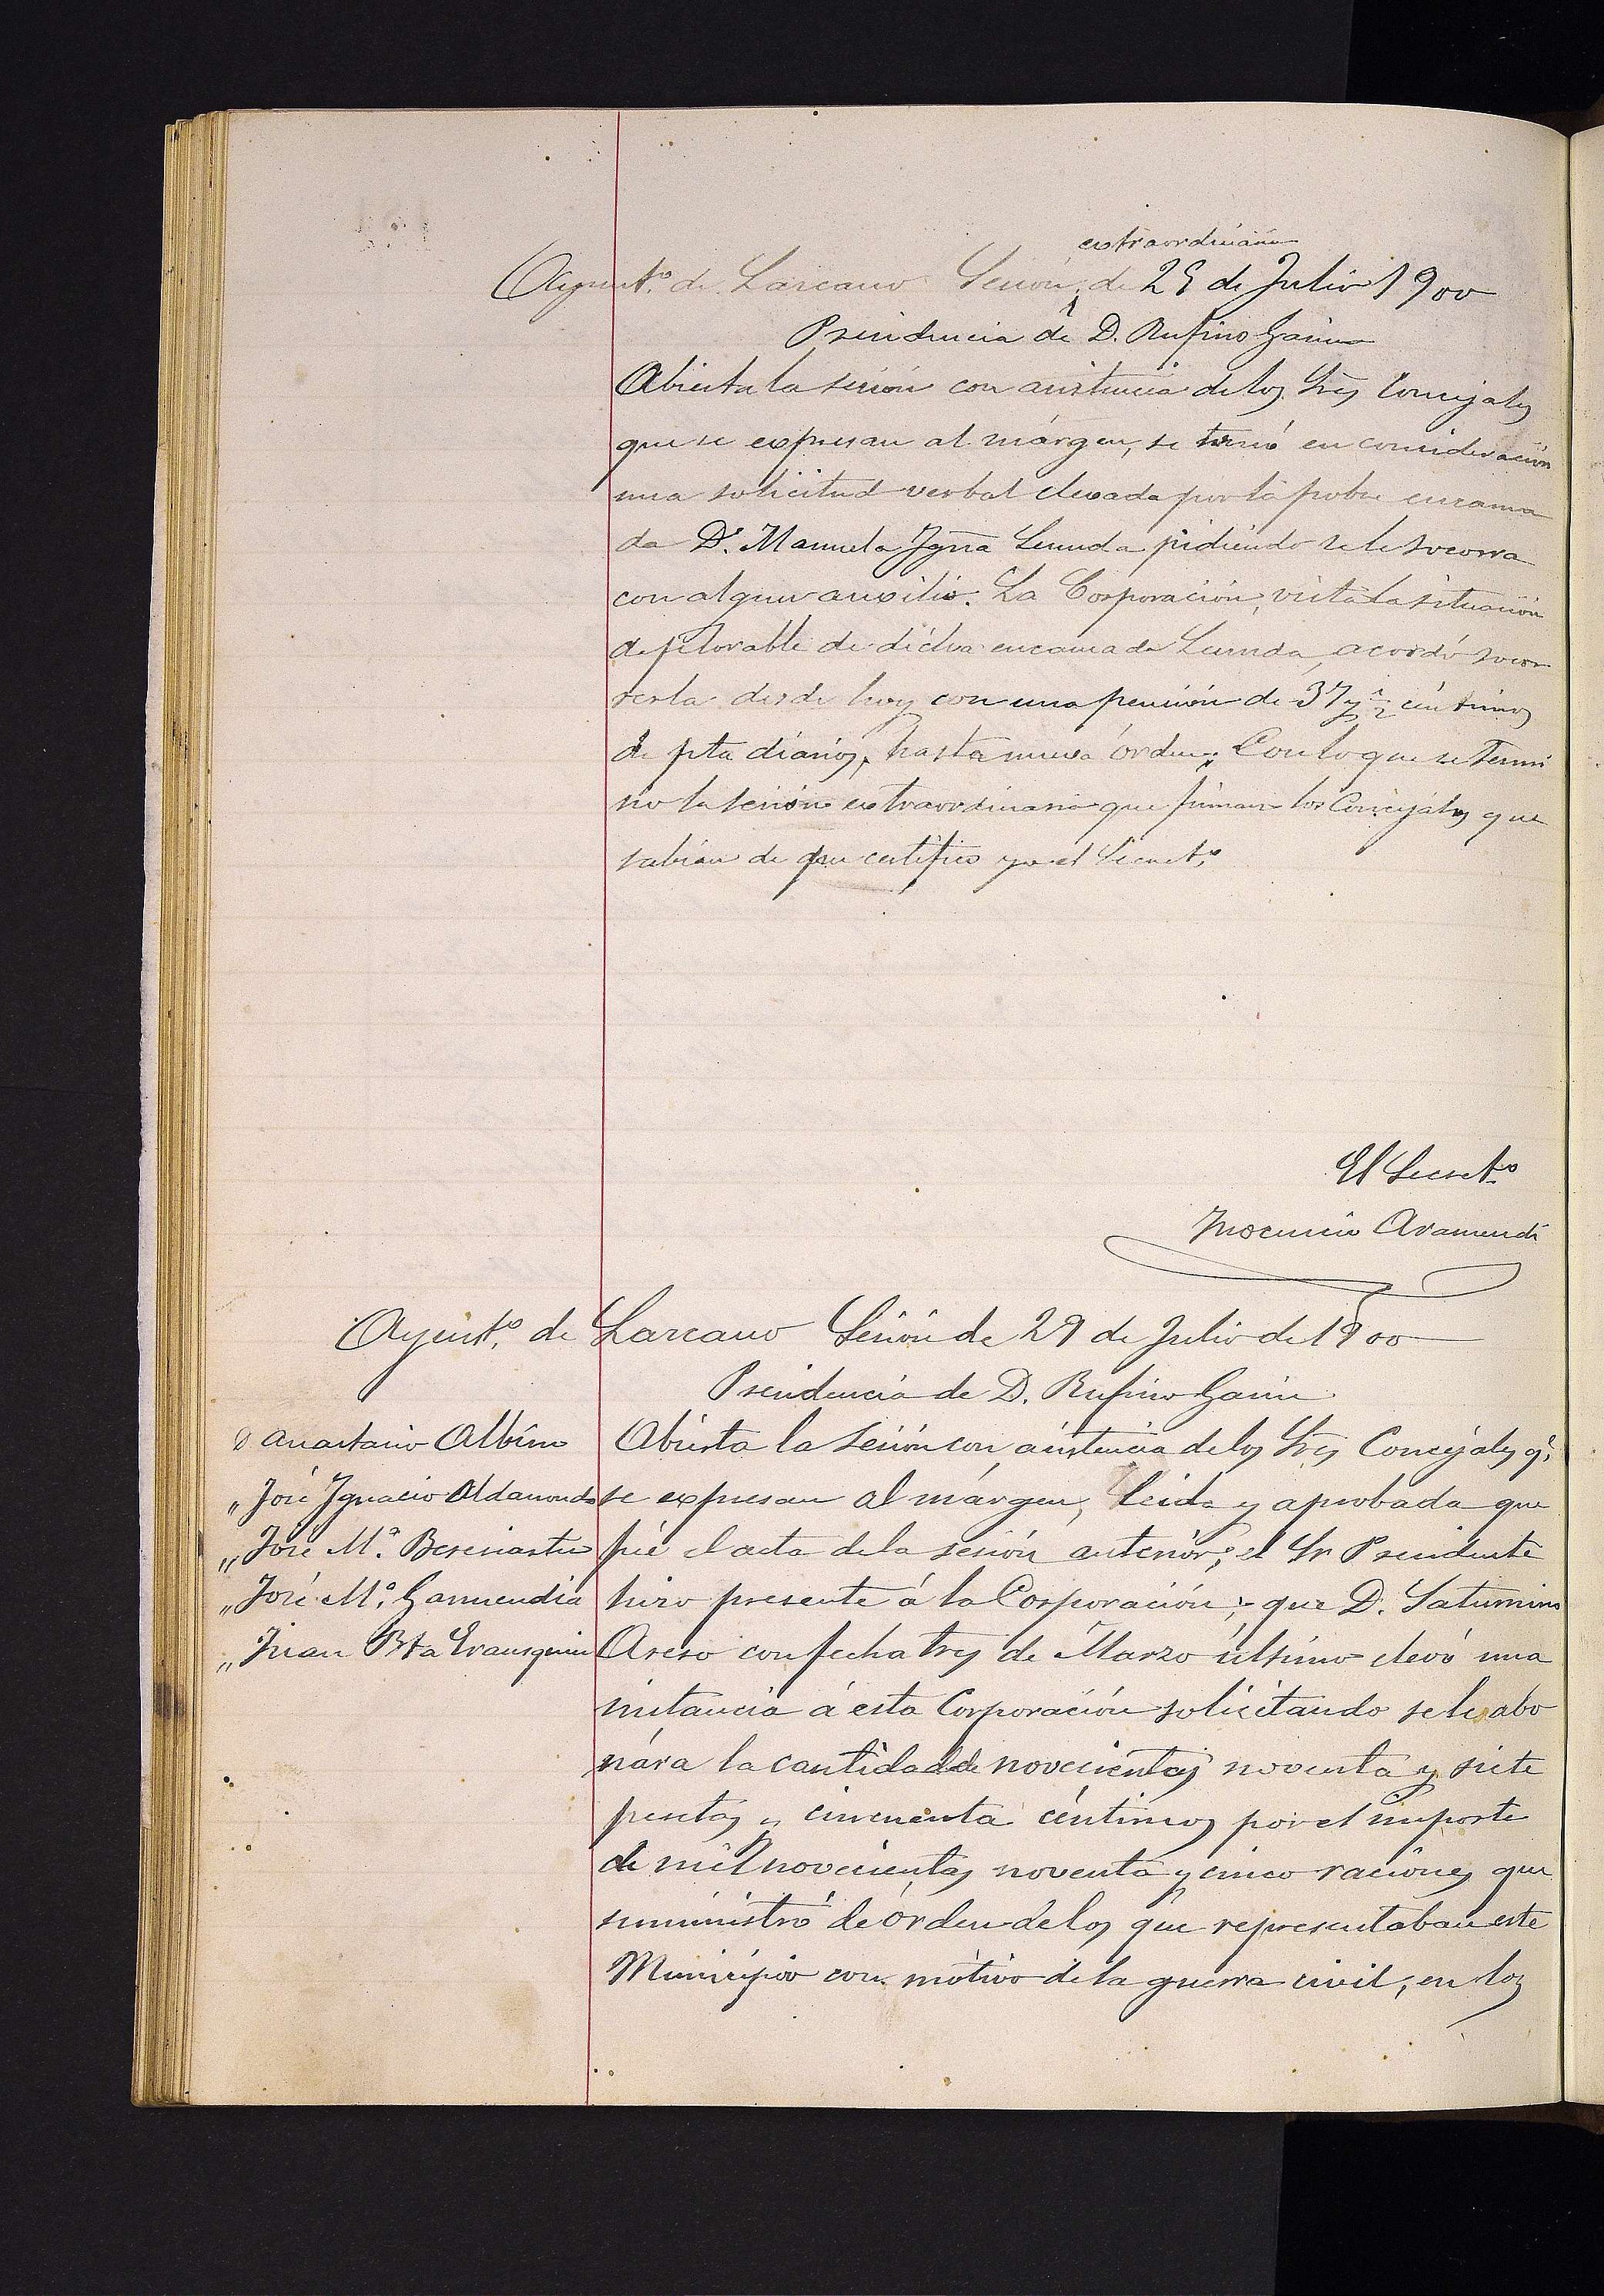 extraordinaria
Ayunt.º de Lazcano Sesión de 25 de Julio 1900
Presidencia de D. Rufino Garin
Abierta la sesión con asistencia de los Sres Concejales
que se expresan al márgen, se tomó en consideración
una solicitud verbal elevada por la pobre encama
da D.ª Manuela Ygna pidiendo se le socorra
con algun auxilio. La Corporación, vista la situación
deplorable de dicha encamada acordó socor
rerla desde hoy con una pensión de 37 y ½ céntimos
de pta diarios, hasta nueva órden; Con lo que se termi
nó la sesión extraordinaria que firman los Concejales que
sabian de que certifico yo el Secret.º
El Secret.º
Inocencio Aramendi
Ayunt.º de Lazcano Sesión de 29 de Julio de 1900
Presidencia de D. Rufino Garin
D Anastasio Albisu
„ José Ygnacio Aldasoro
„ José M.ª Bereciartu
„ José M.ª Garmendia
„ Juan Bta Irausquin
Abierta la Sesión con asistencia de los Sres Concejales q.e
se expresan al márgen, leida y aprobada que
fué el acta de la sesión anterior; el Sr Presidente
hizo presente á la Corporación; que D. Saturnino
Areso con fecha tres de Marzo último elevó una
instancia á esta Corporación solicitando se le abo
nára la cantidad de novecientas noventa y siete
pesetas y cincuenta céntimos por el importe
de mil novecientas noventa y cinco raciones que
suministró de órden de los que representaban este
Municipio con mótivo de la guerra civil, en los